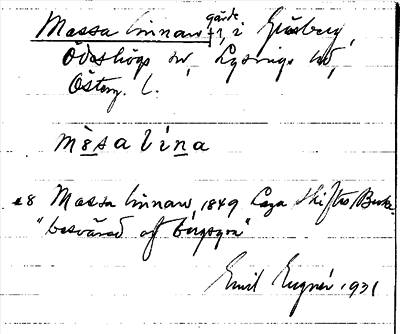 Massa linnaro gärde +1, i Gisberg,
Ödeshögs sn, Lysings hd,
Österg. L.
mèsalina
28 Massa linnaro, 1849 Laga skifte, Beskr.
"besvärad af bergsyra"
Emil Eugner 1931